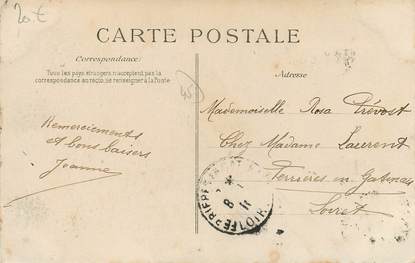 20 €
CARTE POSTALE
Correspondance:
Tous les pays étrangers n'acceptent pas la
correspondance au recto, se renseigner à la Poste
Adresse
45
Remerciements
et bons baisers
Jeanne
Mademoiselle Rosa Prévost
Chez Madame Laurent
Ferrières-en-Gatinais
Loiret